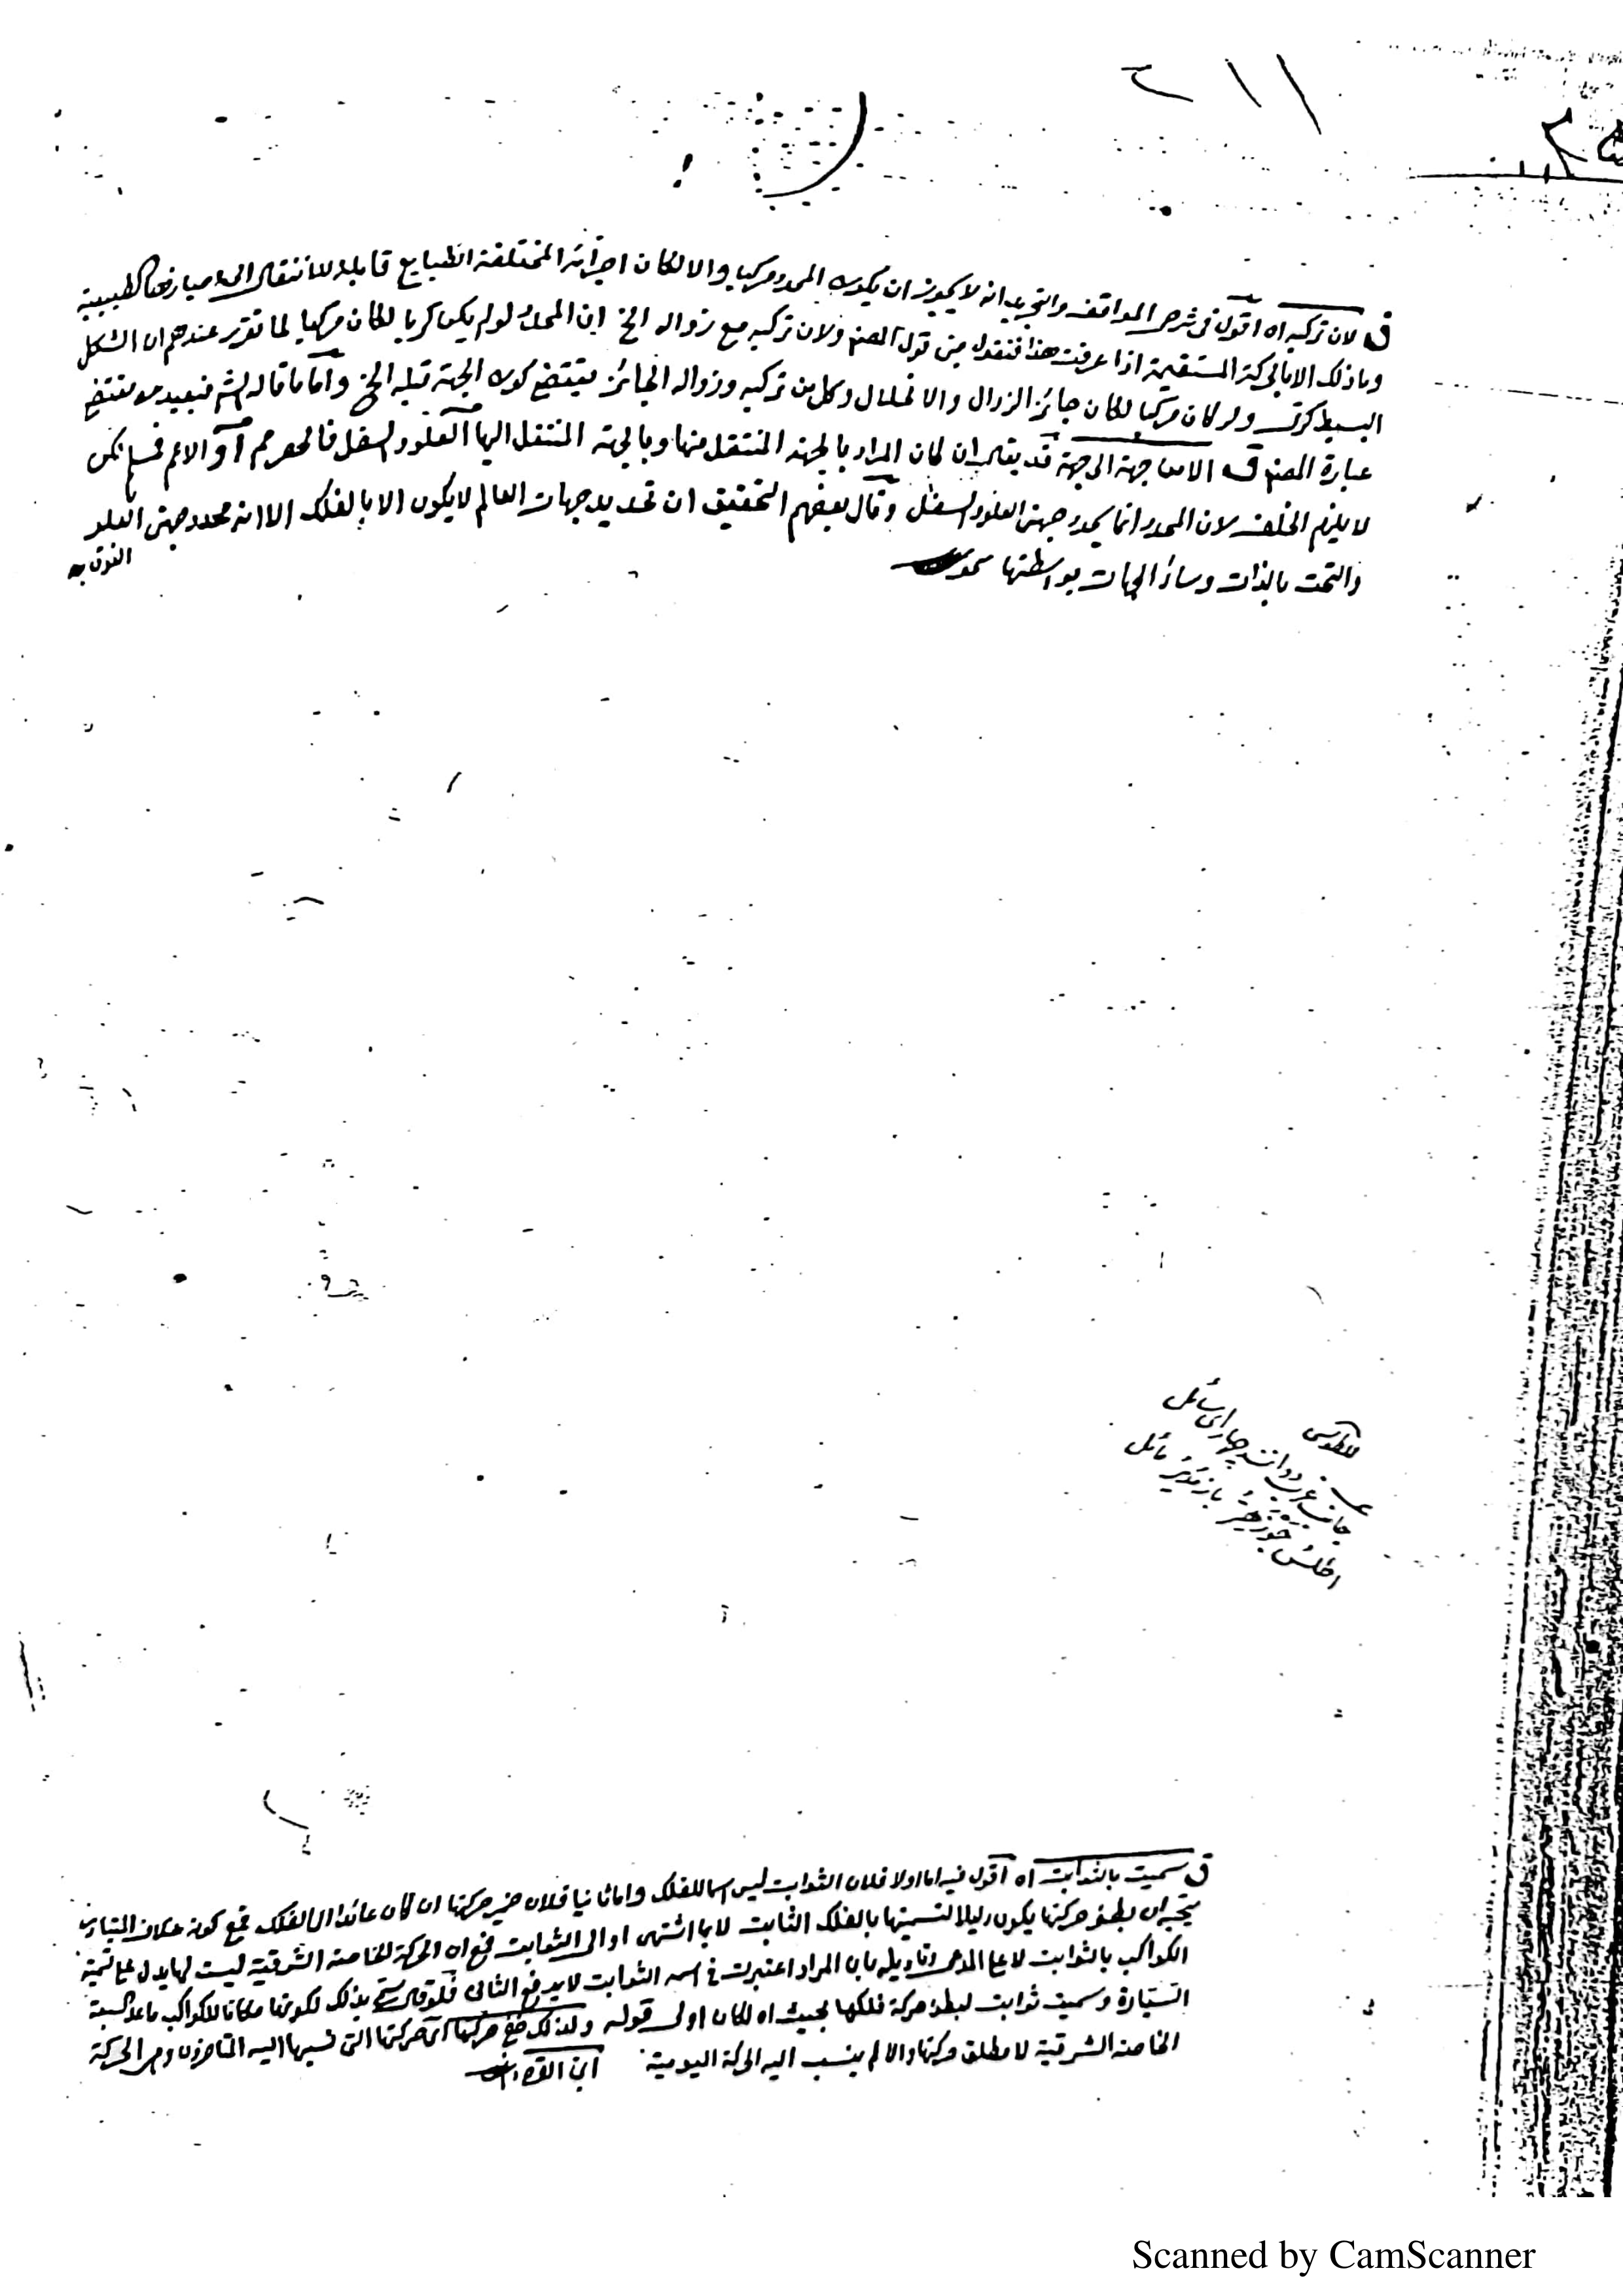 ٢١١
ق لان تركبه اه اقول في شرح المواقف والتجريد انه لا يجوز ان يكون المحدد مركبا والا لكان اجزائه المختلفة الطبايع قابلة للانتقال الى احيازها الطبيعية
وما ذلك الا بالحركة المستقيمة اذا عرفت هذا فنقول معنى قول المصنف ولان تركبه مع زواله الخ ان المحدد لو لم يكن كريا لكان مركبا لما تقرر عندهم ان الشكل
البسيط كرة ولو كان مركبا لكان جائز الزوال والانحلال وكل من تركبه وزواله الجائز يقتضي كون الجهة قبله الخ واما ما قاله الشم فبعيد عن مقتضى
عبارة المصنف ق الا من جهة الى جهة قد يقال ان كان المراد بالجهة المنتقل منها وبالجهة المنتقل اليها العلو والسفل فالحصر مم او الاعم فمسلم لكن
لا يلزم الخلف لان المحدد انما يحدد جهتي العلو والسفل وقال بعضهم التحقيق ان تحديد جهات العالم لا يكون الا بالفلك الا انه محدد جهتي العلو
والتحت بالذات وسائر الجهات بواسطتها
الفوق به
جانب
چهاراى سائل
اطلس جوزهر
مائل
ق سميت بالثوابت اه اقول فيه اما اولا فلان الثوابت ليس اسما للفلك واما ثانيا فلان ضمير حركتها ان كان عائدا الى الفلك فمع كونه خلاف المتبادر
يتجه ان بطؤ حركتها يكون دليلا لتسميتها بالفلك الثابت لا بما اشتهر او الى الثوابت فمع ان الحركة الخاصة الشرقية ليست لها يدل على تسمية
الكواكب بالثوابت لا على المدعى وتاويله بان المراد اعتبرت في اسمه الثوابت لا يدفع الثاني فلو قال سمي بذلك لكونها مكانا للكواكب ما عدا السبعة
السيارة وسميت ثوابت لبطؤ حركة فلكها بحيث اه لكان اولى قوله ولذلك حركتها اي حركتها التي نسبها اليه المتاخرون وهي الحركة
الخاصة الشرقية لا مطلق حركتها والا لم ينسب اليه الحركة اليومية ابن القره
Scanned by CamScanner